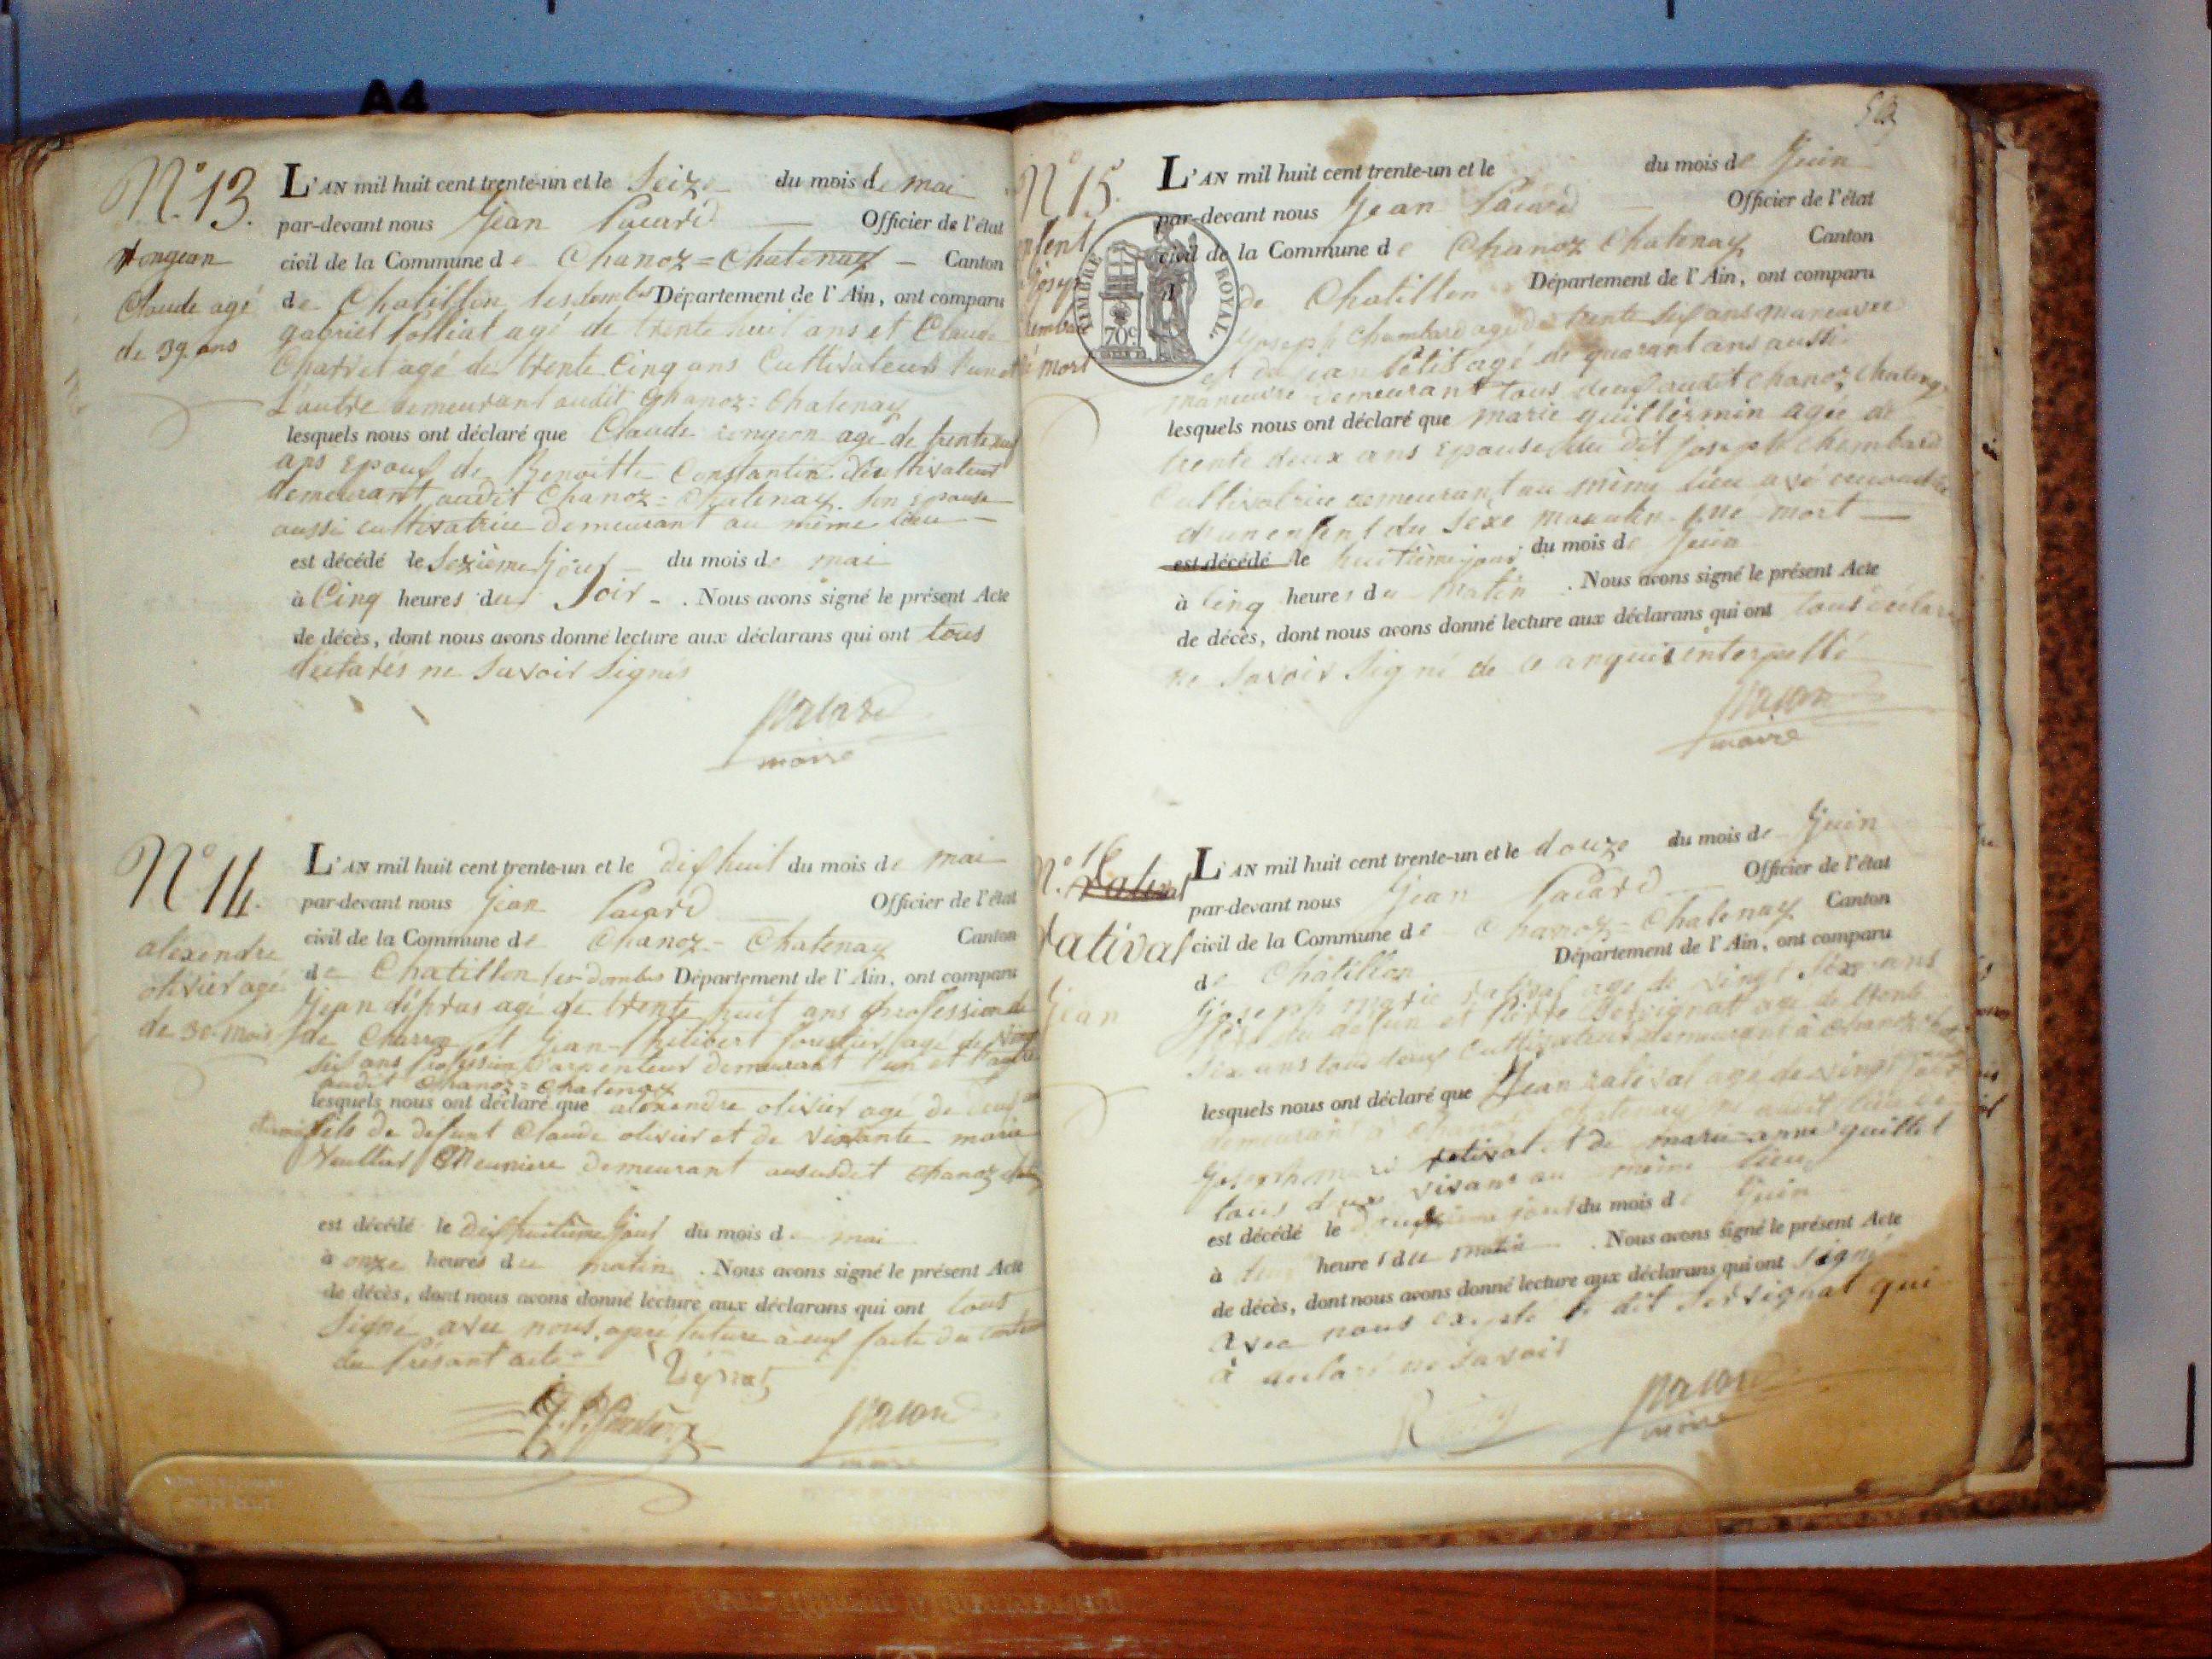 A4
N.° 13.
Claude agé
de 39 ans
L'AN mil huit cent trente-un et le Seize du mois de mai
par-devant nous Jean Pacard Officier de l'état
civil de la Commune de Chanoz = Chatenay Canton
de Chatillon les dombes Département de l'Ain, ont comparu
gabriel folliat agé de trente huit ans et Claude
Charvet agé de trente Cinq ans Cultivateurs l'un et
L'autre demeurant audit Chanoz = Chatenay
lesquels nous ont déclaré que Claude agé de trente neuf
ans Epoux de Benoitte Constantin Cultivateur
demeurant audit Chanoz = Chatenay. Son Epouse
aussi cultivatrice demeurant au même lieu
est décédé le Sezième jour du mois de mai
à Cinq heures du Soir . Nous avons signé le présent Acte
de décès, dont nous avons donné lecture aux déclarans qui ont tous
déclarés ne Savoir Signés
Pacard
maire
N.° 14.
alexendre
olivier agé
de 30 mois
L'AN mil huit cent trente-un et le dix huit du mois de mai
par-devant nous Jean Pacard Officier de l'état
civil de la Commune de Chanoz = Chatenay Canton
de Chatillon les dombes Département de l'Ain, ont comparu
Jean agé de trente huit ans profession de
de Charron et Jean-Philibert forestier agé de vingt
Six ans Profession D'arpenteur demeurant l'un et l'autre
audit Chanoz = Chatenay
lesquels nous ont déclaré que alexendre olivier agé de
fils de defunt Claude olivier et de vivante marie
Meuniere demeurant ausudit Chanoz
est décédé le dixhuitième jour du mois de mai
à onze heures du matin . Nous avons signé le présent Acte
de décès, dont nous avons donné lecture aux déclarans qui ont tous
Signé avec nous, apré lecture à eux faite du contenu
du Présant acte
Pacard
maire
N.° 15.
mort
TIMBRE ROYAL.
70c
L'AN mil huit cent trente-un et le du mois de Juin
par-devant nous Jean Pacard Officier de l'état
civil de la Commune de Chanoz Chatenay Canton
de Chatillon Département de l'Ain, ont comparu
Joseph Chambard agé de trente Six ans manœuvre
et de jean Petit agé de quarant ans aussi
manœuvre demeurant tous deux audit Chanoz Chatenay
lesquels nous ont déclaré que marie guillermin agée de
trente deux ans Epouse du dit joseph Chambard
Cultivatrice demeurant au même lieu
d'un enfent du Sexe masculin né mort
est décédé le huitième jour du mois de Juin
à Cinq heures du matin . Nous avons signé le présent Acte
de décès, dont nous avons donné lecture aux déclarans qui ont tous déclaré
ne Savoir Signé de ce anquis enterpellé
Pacard
maire
N.° 16
Ratival
Ratival
Jean
L'AN mil huit cent trente-un et le douze du mois de Juin
par-devant nous Jean Pacard Officier de l'état
civil de la Commune de Chanoz = Chatenay Canton
de Châtillon Département de l'Ain, ont comparu
Joseph marie ratival agé de vingt Six ans
Père du defun et Pierre Servignat agé de trente
Six ans tous deux Cultivateur demeurant à Chanoz
lesquels nous ont déclaré que Jean ratival agé de vingt
demeurant à Chanoz Chatenay
Joseph marie ratival et de marie-anne guillet
tous deux vivans au même lieu
est décédé le jour du mois de Juin
à heures du matin . Nous avons signé le présent Acte
de décès, dont nous avons donné lecture aux déclarans qui ont signé
avec nous excepté le dit Servignat qui
à declaré ne Savoir
Pacard
maire